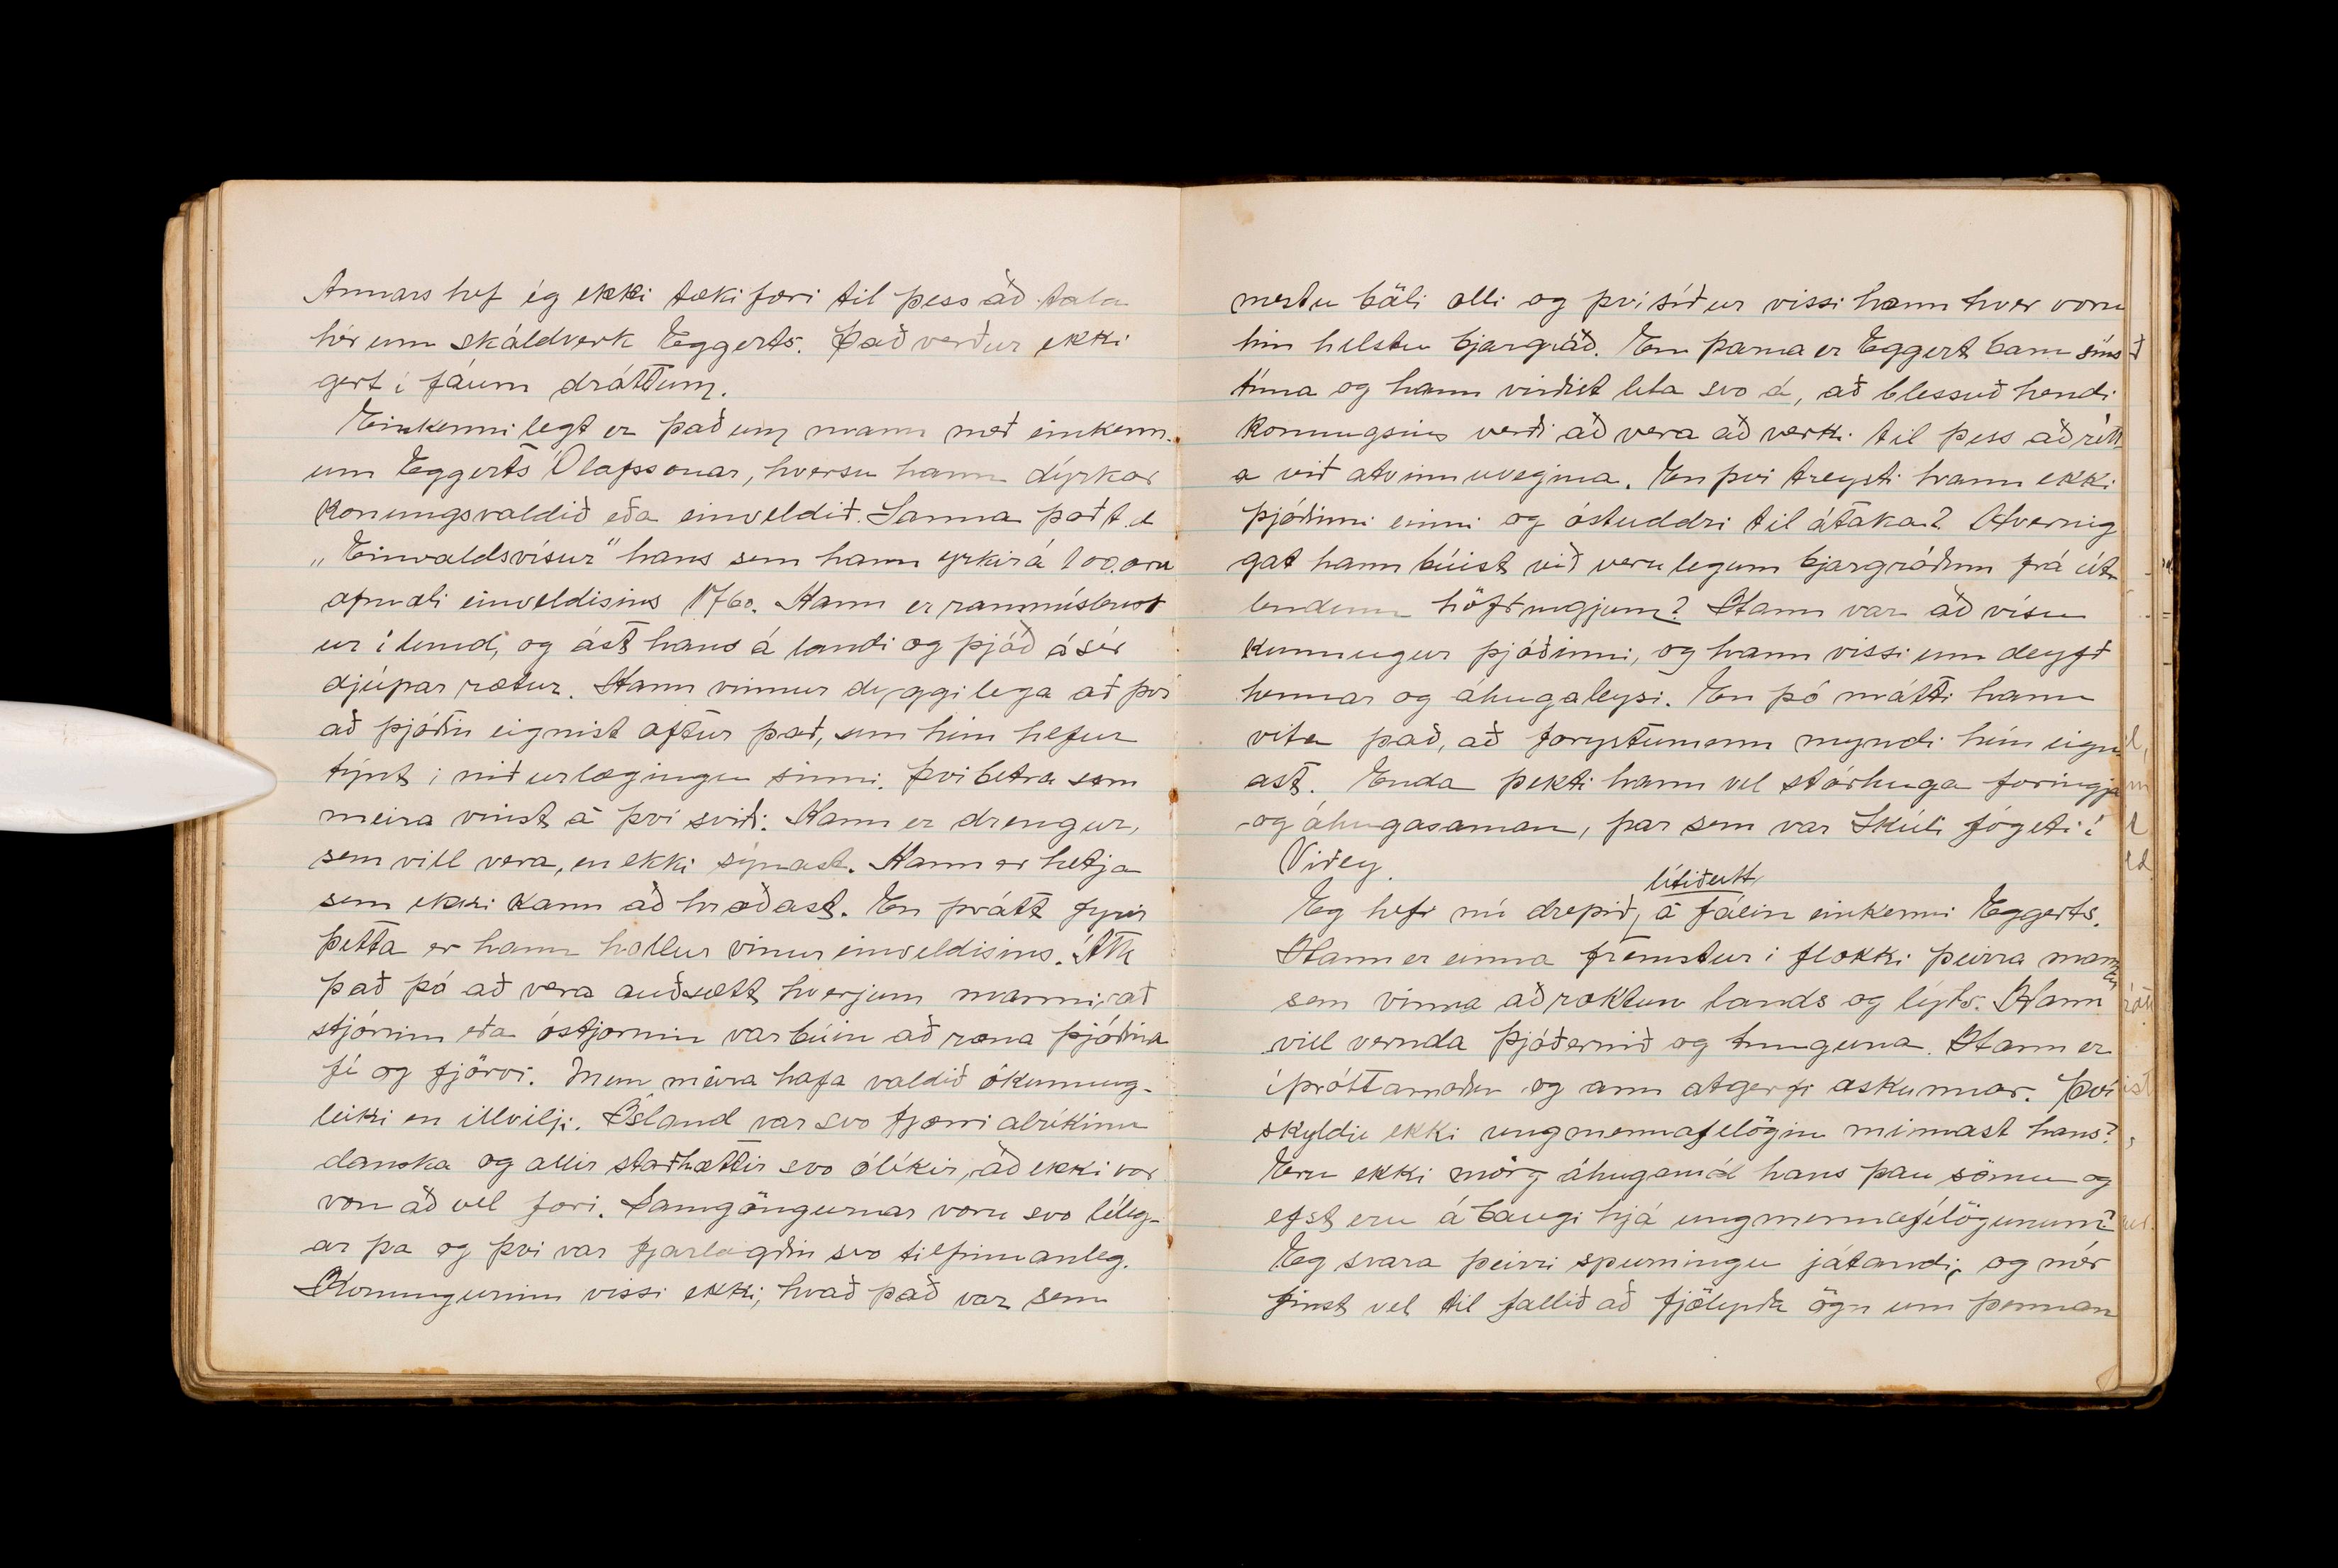 Annars hef ég ekki tækifæri til þess að tala
hér um skáldverk Eggerts. Það verður ekki
gert í fáum dráttum.
Einkennilegt er það um mann með einkenn-
um Eggerts Ólafssonar, hversu hann dýrkar
konungsvaldið eða einveldið. Sanna það t.d.
„Einvaldsvísur" hans sem hann yrkir á 100.ára
afmæli einveldisins 1760. Hann er rammíslensk
ur í lund, og ást hans á landi og þjóð á sér
djúpar rætur. Hann vinnur dyggilega að því
að þjóðin eignist aftur það, sem hún hefur
týnt í niðurlægingu sinni. Því betra sem
meira vinst á því sviði. Hann er drengur,
sem vill vera, en ekki sýnast. Hann er hetja
sem ekki kann að hræðast. En þrátt fyrir
þetta er hann hollur vinur einveldisins. Ætti
það þó að vera auðsætt hverjum manni, að
stjórnin eða óstjórnin var búin að ræna þjóðina
fé og fjörvi. Mun meira hafa valdið ókunnug-
leiki en illvilji. Ísland var svo fjærri alríkinu
danska og allir staðhættir svo ólíkir, að ekki var
von að vel færi. Samgöngurnar voru svo léleg-
ar þa og því var fjarlægðin svo tilfinnanleg.
Konungurinn vissi ekki, hvað það var sem
mestu böli olli og því síður vissi hann hver voru
hin helstu bjargráð. En þarna er Eggert barn síns
tíma og hann virðist líta svo á, að blessuð hendi
konungsins verði að vera að verki til þess að rétt
a við atvinnuvegina. En því treysti hann ekki
þjóðinni einni og óstuddri til átaka? Hvernig
gat hann búist við verulegum bjargráðum frá út-
lendum höfðingjum? Hann var að vísu
kunnugur þjóðinni, og hann vissi um deyfð
hennar og áhugaleysi. En þó mátti hann
vita það, að forystumenn myndi hún eign-
ast. Enda þekti hann vel stórhuga foringja
og áhugasaman, þar sem var Skúli fógeti í
Viðey.
Eg hefi nú drepið, lítið eitt á fáein einkenni Eggerts.
Hann er einna fremstur í flokki þeirra manna
sem vinna að ræktun lands og lýðs. Hann
vill vernda þjóðernið og tunguna. Hann er
íþróttamaður og ann atgerfi æskunnar. Því
skyldu ekki ungmennafélögin minnast hans?
Eru ekki mörg áhugamál hans þau sömu og
efst eru á baugi hjá ungmennafélögunum?
Eg svara þeirri spurningu játandi, og mér
finst vel til fallið að fjölyrða ögn um þennan